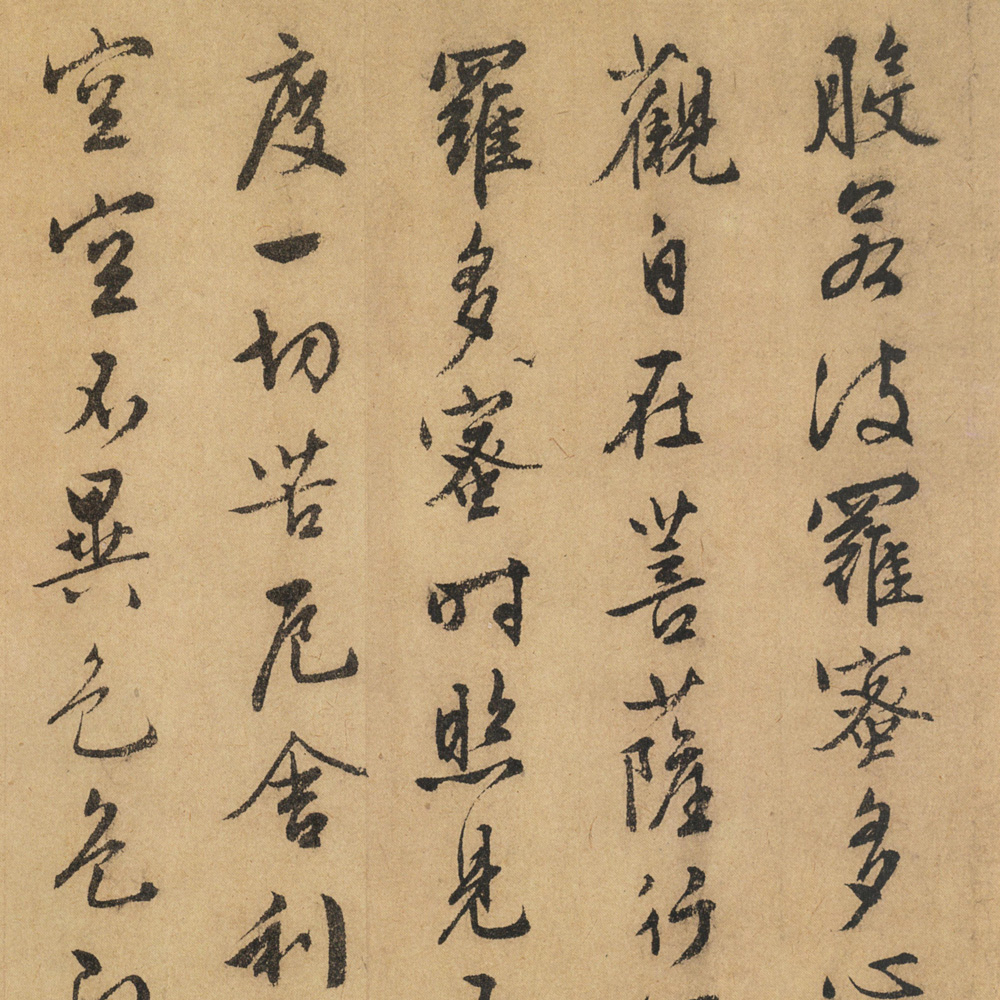 般若波羅蜜多心
觀自在菩薩行
羅多蜜時照見
度一切苦厄舍利
空空不異色色